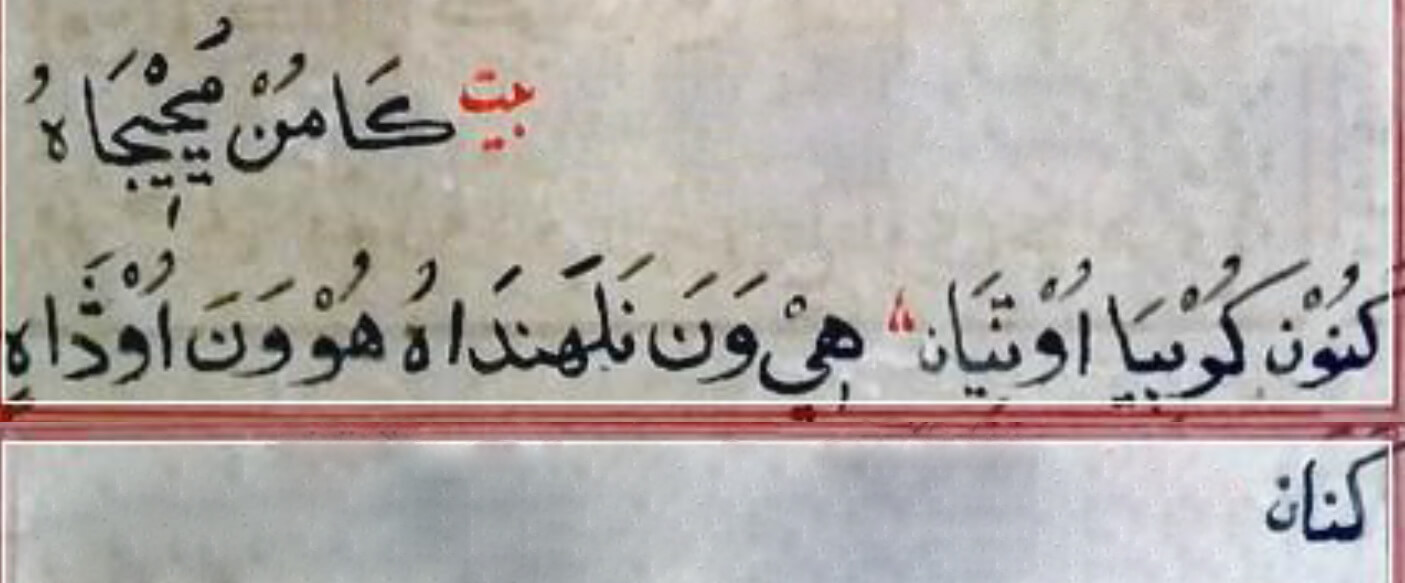 بيت كَامُنْ مُحْبِجَاهُ
كَنُوْن كَوُبِيَا اُوْتِيَان هِيْ وَنَ نَلَهندَاهُ هُوْ وَنَ اُوْڌَاهِ
كنان